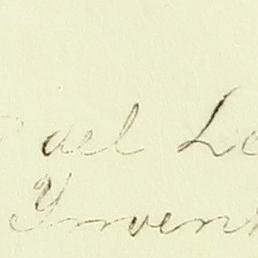 ael Le
Invent